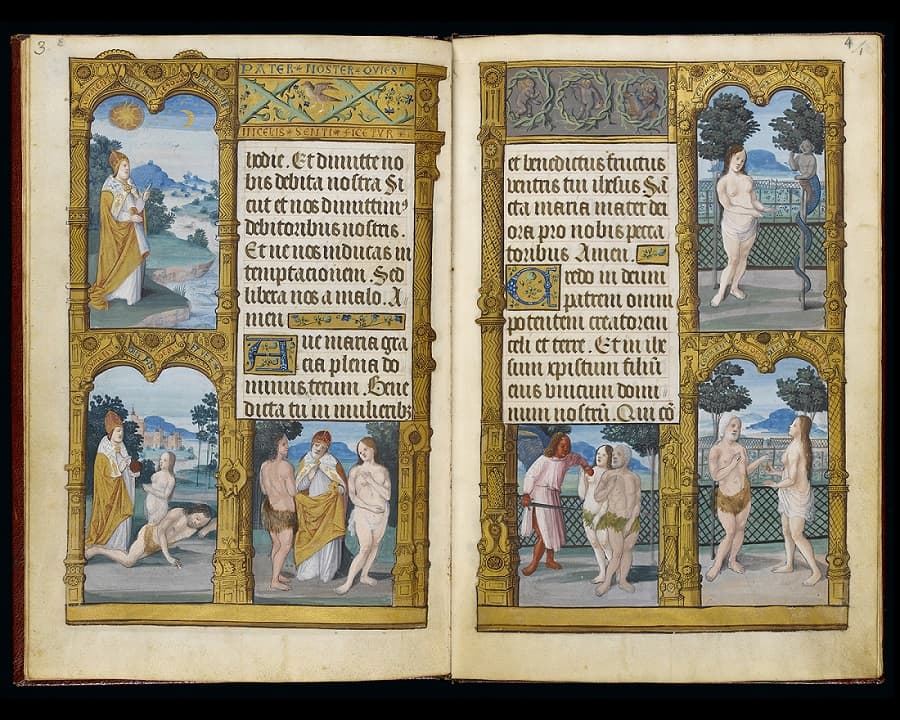 3
PATER NOSTER QVI EST
IN CELIS SENTI FICETVR
hodie. Et dimitte no
bis debita nostra Si
cut et nos dimittim9
debitoribus nostris.
Et ne nos inducas in
temptacionem. Sed
libera nos a malo. A
men
Aue maria gra
cia plena do
minus tecum. Bene
dicta tu in mulierib3
4
et benedictus fructus
ventris tui ihesus Sã
cta maria mater dei
ora pro nobis pecca
toribus Amen.
Credo in deum
patrem omni
potentem creatorem
celi et terre. Et in ihe
sum xpistum filiũ
eius vnicum domi
num nostrũ. Qui cõ